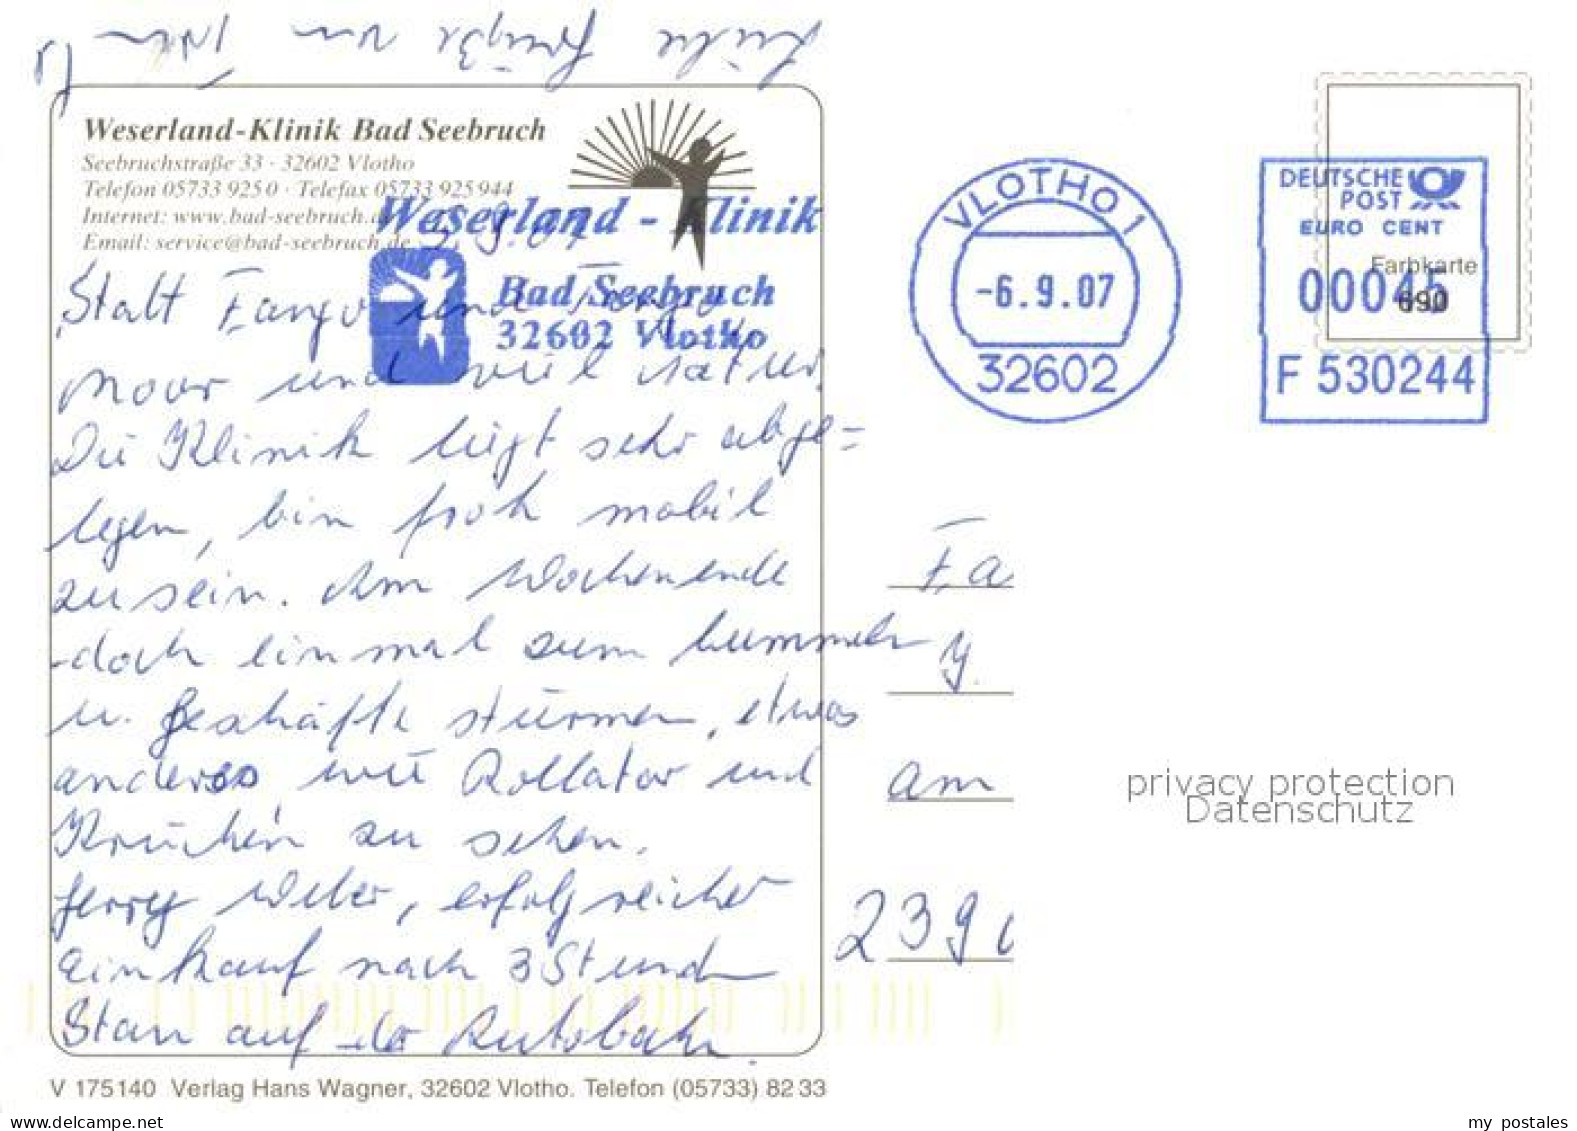 Liebe Grüße von
Weserland-Klinik Bad Seebruch
Seebruchstraße 33 · 32602 Vlotho
Telefon 05733 925 0 · Telefax 05733 925 944
Internet: www.bad-seebruch.de
Email: service@bad-seebruch.de
Weserland - Klinik
Bad Seebruch
32602 Vlotho
5.9.07
Statt Fango und Tango
Moor und viel Natur.
Die Klinik liegt sehr abge=
legen, bin froh mobil
zu sein. Am Wochenende
doch einmal zum bummeln
u. Geschäfte stürmen, etwas
anderes wie Rollator und
Krücken zu sehen.
Gerry Weber, erfolgreicher
Einkauf nach 3 Stunden
Stau auf der Autobahn.
V 175140 Verlag Hans Wagner, 32602 Vlotho. Telefon (05733) 82 33
VLOTHO 1
-6.9.07
32602
DEUTSCHE
POST
EURO CENT
00045
F 530244
Farbkarte
690
Fa
y.
am
239
privacy protection
Datenschutz
my postales
www.delcampe.net